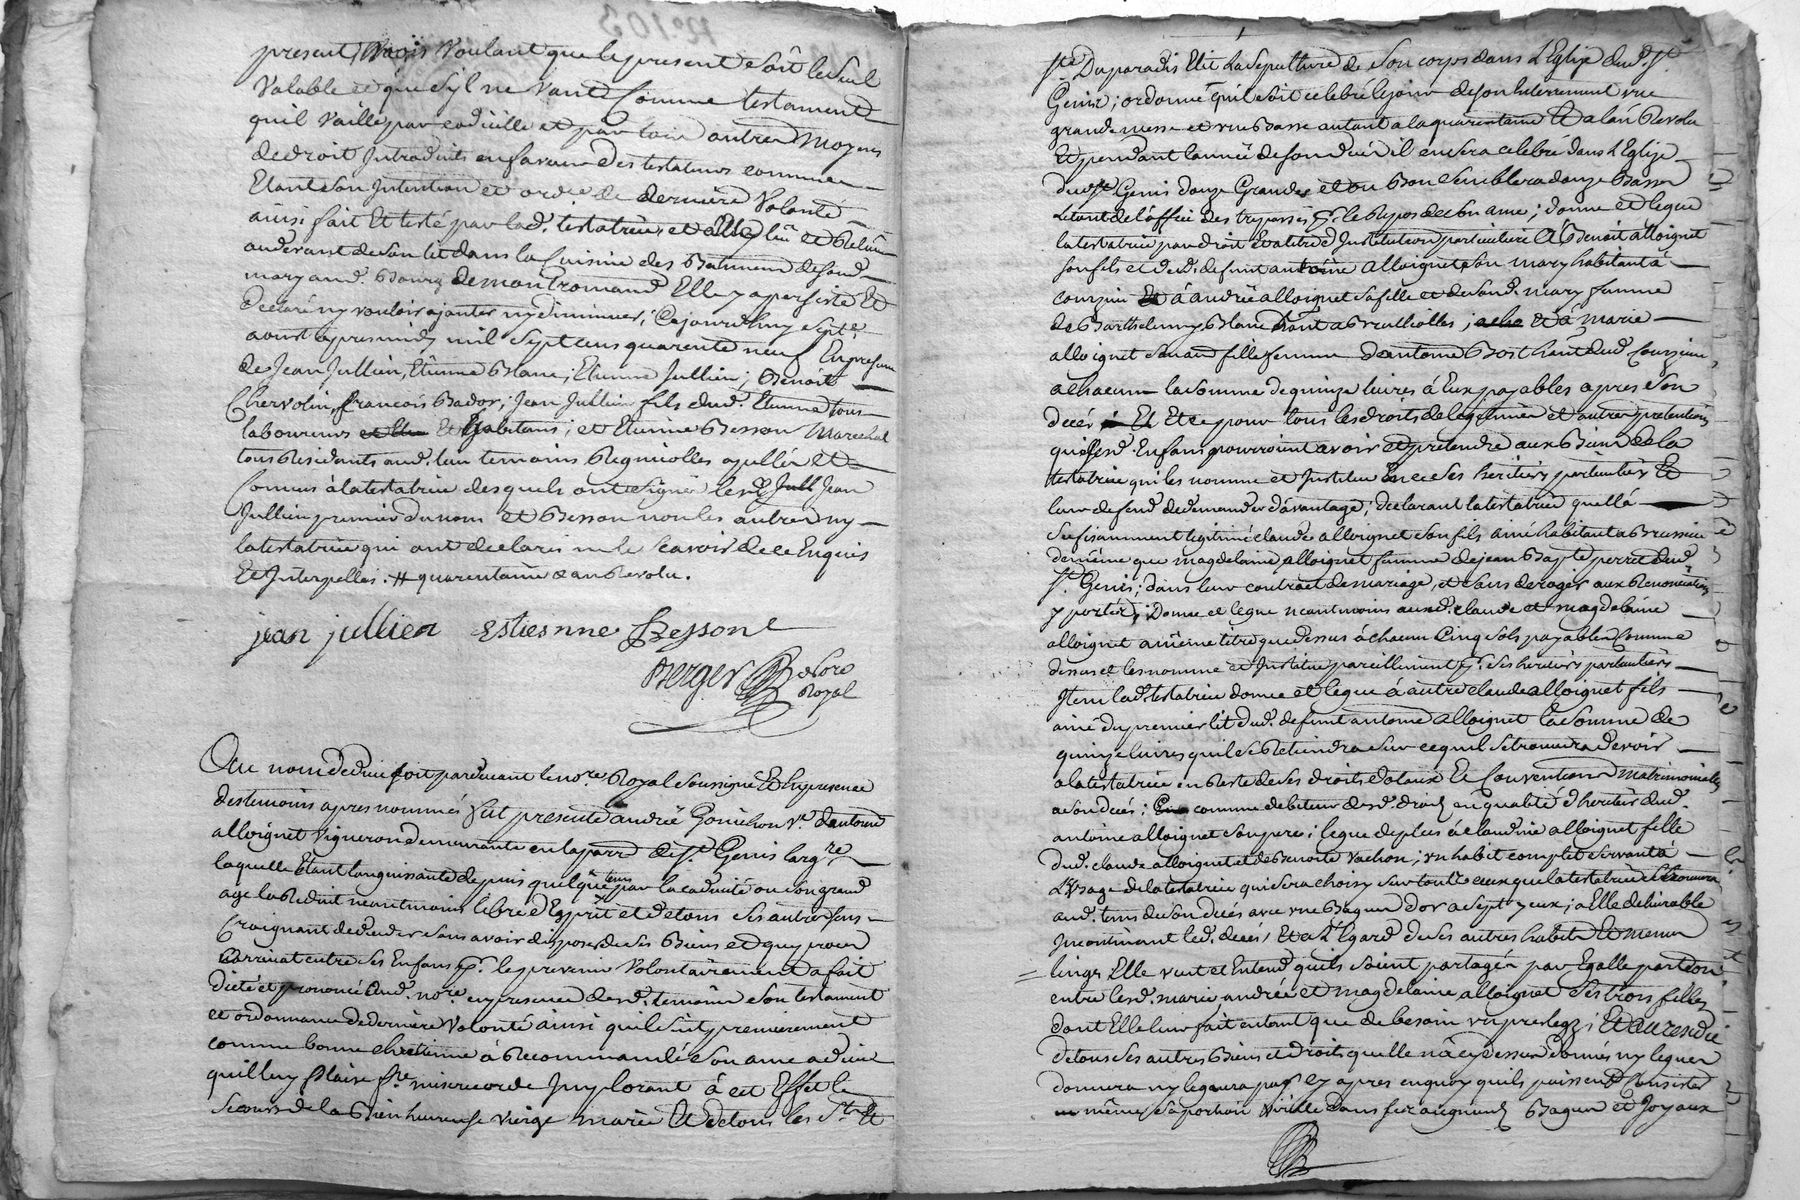 present, voulant que le present soit le seul
valable et que syl ne vaut comme testament
quil vaille par codicille et par tous autres moyens
de droit Introduits en faveur des testateurs comme
Etant son Intention et ord.ce de derniere volonté
ainsi fait Et testé par lad. testatrice, et
audevant de son lit dans la Cuisine des Batiments de son d.
mary aud. Bourg de montromand Elle y a persisté Et
declaré ny vouloir ajouter ny diminuer; Cejourdhuy sept.e
aoust apres midy mil sept cens quarente neuf En presence
de Jean Jullien, Etienne Blanc; Etienne Jullien; Benoist
Chervolin, francois Bador; Jean Jullien fils dud. Etienne tous
laboureurs Et habitans; et Etienne Besson Marechal
tous Residants aud. lieu temoins Requis appellés et
Connus à la testatrice desquels ont signés lesd. Jean
Jullien premier du nom et Besson non les autres ny
la testatrice qui ont declarés ne le scavoir de ce Enquis
Et Interpellés. # quarentaine & an Revolu.
jean jullien Estiesnne Besson
Berger no.re
Royal
Au nom de dieu soit pardevant le no.re Royal soussigné Et En presence
des temoins apres nommés fut presente andrée Gonichon v.e dantoine
alloignet vigneron demeurante en la parr. de s.t Genis larg.re
laquelle Etant languissante depuis quelque tems par la caducité ou son grand
age la Reduit neantmoins libre d'Esprit et de tous ses autres sens
Craignant de deceder sans avoir disposé de ses Biens et quy pour
arrivat entre ses Enfans p.r le prevenir volontairement a fait
dicté et prononcé aud. no.re en presence desd. temoins son testament
et ordonnance de derniere volonté ainsi quil suit premierement
comme bonne chretienne à Recommandé son ame a dieu
quil luy plaise f.re misericorde Implorant à cet Effet le
secours de la Bienheureuse vierge marie Et de tous les s.ts Et
s.tes Du paradis Elit la sepulture de son corps dans l'Eglise dud. s.t
Genis; ordonne quil soit celebré le jour de son Enterrement une
grande messe et une Basse autant a la quarantaine Et a lan Revolu
Et pendant lannée de son decés il en sera celebré dans l'Eglise
dud. s.t Genis douze Grandes et ou Bon semblera douze Basses
Letout de l'office des trepassés p.r le Repos de son ame; donne et legue
la testatrice par droit Et a titre d'Institution particuliere à Benoit alloignet
son fils et dud. defunt antoine alloignet son mary habitant à
courzieu Et à andrée alloignet sa fille et de sond. mary femme
de Barthelemy Blanc habitant a Brullioles; et à marie
alloignet sa fille femme d'antoine Bost habitant dud. Courzieu,
a chacun la somme de quinze livres à Eux payables apres son
decés Et ce pour tous les droits de legitime et autres pretentions
que lesd. Enfans pourroient avoir Et pretendre aux Biens de la
testatrice qui les nomme et Institue En ce ses heritiers particuliers Et
leur defend de demander d'avantage; declarant la testatrice quell'a
sufisamment legitimé claude alloignet son fils ainé habitant a Brussieu
de même que magdelaine alloignet femme de jean Bap.te perret dud.
s.t Genis; dans leur contrat de mariage, et sans deroger aux Renonciations
y portées; Donne et legue neantmoins auxd. claude et magdelaine
alloignet a même titre que dessus à chacun Cinq sols payables Comme
dessus et les nomme et Institue pareillement p.r ses heritiers particuliers
Item lad. testatrice donne et legue à autre claude alloignet fils
ainé du premier lit dud. defunt antoine alloignet la somme de
quinze livres quil se Retiendra sur ce quil se trouvera devoir
a la testatrice en Reste de ses droits dotaux Et Conventions matrimoniales
a son decés; comme debiteur desd. droits en qualité d'heritier dud.
antoine alloignet son pere; legue de plus à claudine alloignet fille
dud. claude alloignet et de Benoite vachon; un habit complet servant à
l'usage de la testatrice qui sera choisy sur tous ceux que la testatrice se trouvera
aud. tems de son decés avec une Bague d'or a sept yeux; a Elle delivrable
Incontinant led. decés, Et a l'Egard de ses autres habits Et menus
linges Elle veut et Entend quils soient partagés par Egalle portion
entre lesd. marie, andrée et magdelaine alloignet ses trois filles
dont Elle leur fait entant que de besoin un prelegs; Et au residu
de tous ses autres Biens et droits quelle n'a cy dessus donnés ny legués
donnera ny leguera pas cy apres en quoy quils puissent Consister
même sa portion virille dans ses augment Bagues et Joyaux